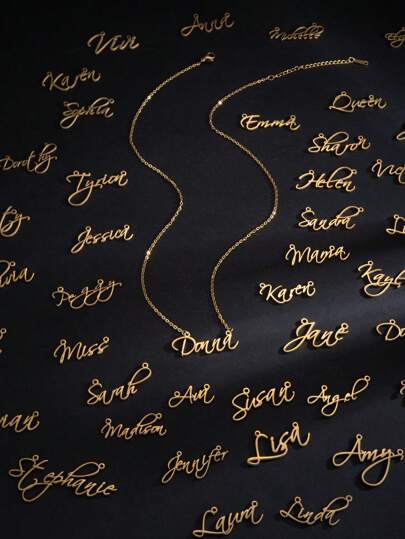 Anna
Vivi
Michelle
Karen
Queen
Sophia
Emma
Sharon
Dorothy
Tyrion
Helen
Jessica
Sandra
Maria
Peggy
Karen
Donna
Jane
Miss
Sarah
Ava
Susan
Angel
Madison
Lisa
Jennifer
Amy
Stephanie
Laura
Linda